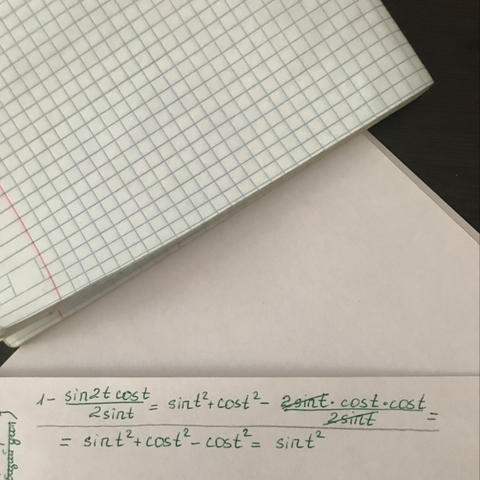 1 - sin2t cost / 2sint = sint² + cost² - 2sint · cost · cost / 2sint =
= sint² + cost² - cost² = sint²